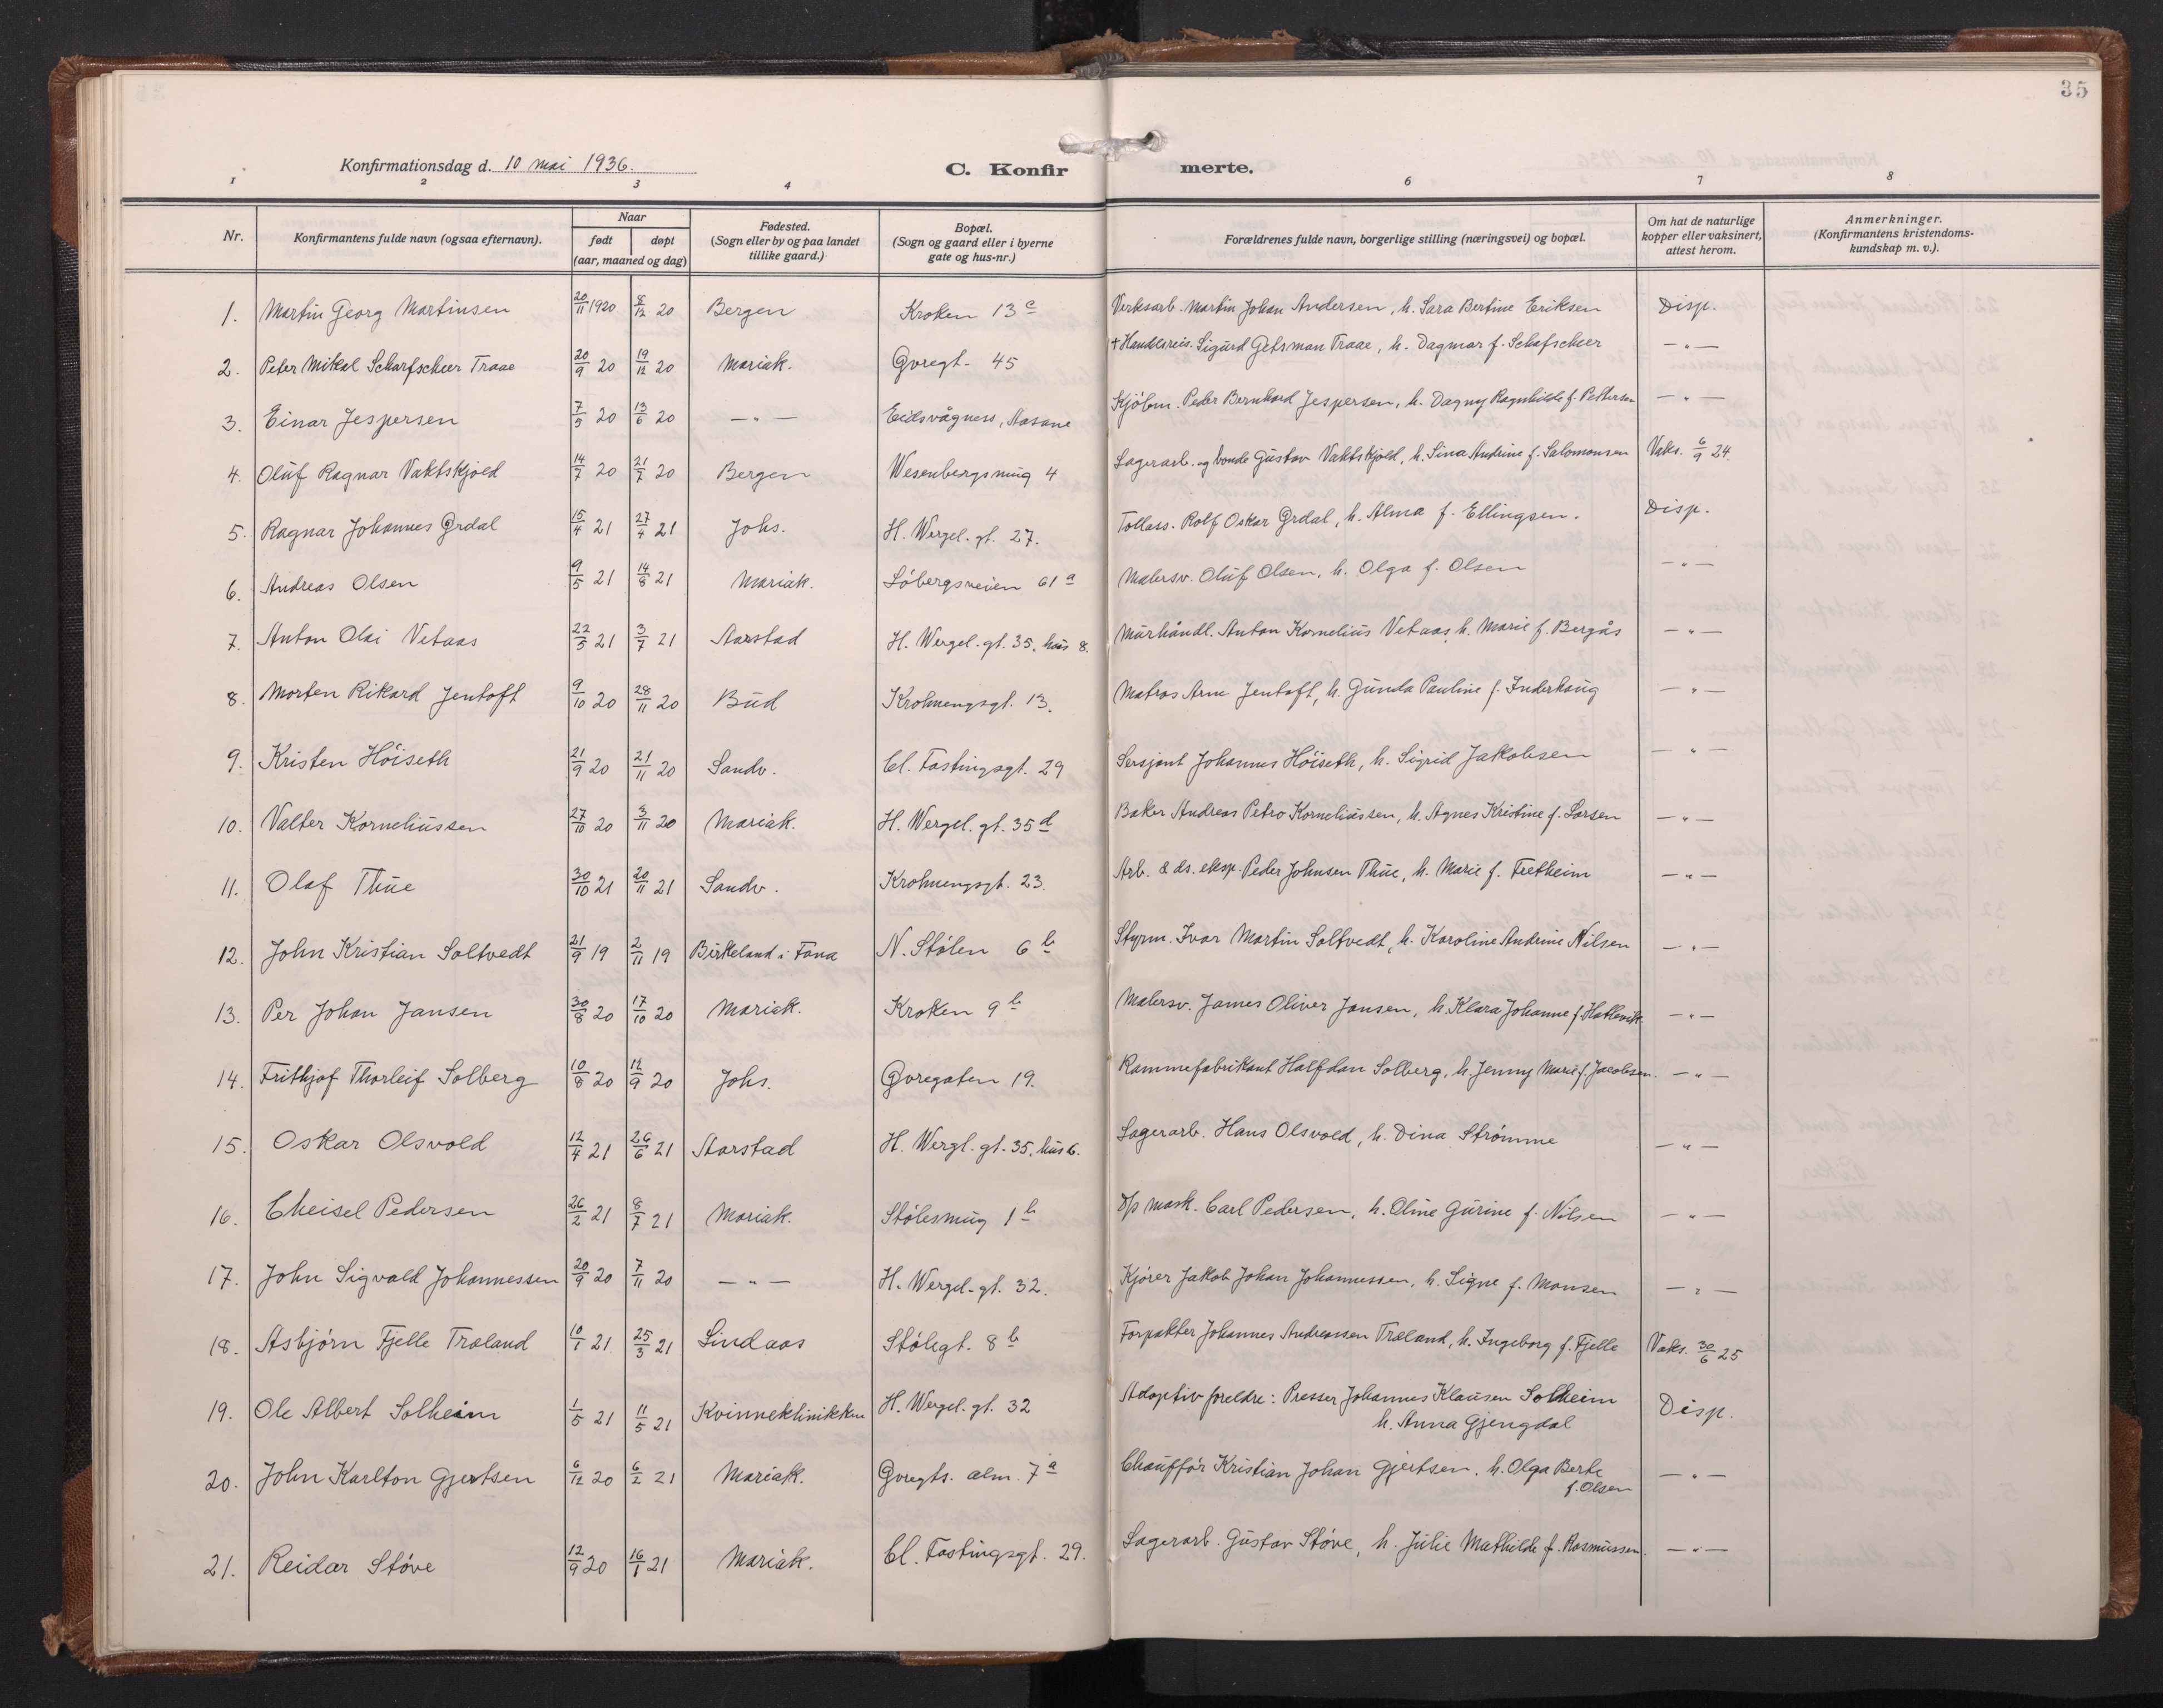 35
Konfirmationsdag d. 10 mai 1936.
C. Konfirmerte.
1 2 3 4 6 7 8
Nr. | Konfirmantens fulde navn (ogsaa efternavn). | Naar født døpt (aar, maaned og dag) | Fødested. (Sogn eller by og paa landet tillike gaard.) | Bopæl. (Sogn og gaard eller i byerne gate og hus-nr.) | Forældrenes fulde navn, borgerlige stilling (næringsvei) og bopæl. | Om hat de naturlige kopper eller vaksinert, attest herom. | Anmerkninger. (Konfirmantens kristendoms-kundskap m. v.).
1. Martin Georg Martinsen 20/11 1920 8/12 20 Bergen Kroken 13c Verksarb. Martin Johan Andersen, h. Sara Bertine Eriksen Disp.
2. Peter Mikal Scharfscheer Traae 20/9 20 19/12 20 Mariak. Øvregt. 45 + Handelsreis. Sigurd Getsman Traae, h. Dagmar f. Schafscheer -"-
3. Einar Jespersen 7/5 20 13/6 20 -"- Eidsvågness, Aasane Kjøbm. Peder Bernhard Jespersen, h. Dagny Ragnhilde f. Pettersen -"-
4. Oluf Ragnar Vaktskjold 14/7 20 21/7 20 Bergen Wesenbergsmug 4 Lagerarb. og bonde Gustav Vaktskjold, h. Sina Andrine f. Salomonsen Vaks. 6/9 24.
5. Ragnar Johannes Ørdal 15/4 21 27/4 21 Johs. H. Wergel. gt. 27. Tollass. Rolf Oskar Ørdal, h. Alma f. Ellingsen. Disp.
6. Andreas Olsen 9/5 21 14/8 21 Mariak. Søbergsveien 61a Malersv. Oluf Olsen, h. Olga f. Olsen -"-
7. Anton Olai Vetaas 22/5 21 3/7 21 Aarstad H. Wergel. gt. 35, hus 8. Murhåndl. Anton Kornelius Vetaas, h. Marie f. Bergås -"-
8. Morten Rikard Jentoft 9/10 20 28/11 20 Bud Krohnengsgt. 13. Matros Arne Jentoft, h. Gunda Pauline f. Inderhaug -"-
9. Kristen Høiseth 21/9 20 21/11 20 Sandv. Cl. Fastingsgt. 29 Sersjant Johannes Høiseth, h. Sigrid Jakobsen -"-
10. Valter Korneliussen 27/10 20 3/11 20 Mariak. H. Wergel. gt. 35d Baker Andreas Petro Korneliussen, h. Agnes Kristine f. Larsen -"-
11. Olaf Thue 30/10 21 20/11 21 Sandv. Krohnengsgt. 23. Arb. & ds. eksp. Peder Johnsen Thue, h. Marie f. Fretheim -"-
12. John Kristian Soltvedt 21/9 19 2/11 19 Birkeland i Fana N. Stølen 6b Styrm. Ivar Martin Soltvedt, h. Karoline Andrine Nilsen -"-
13. Per Johan Jansen 30/8 20 17/10 20 Mariak. Kroken 9b Malersv. James Oliver Jansen, h. Klara Johanne f. Hatlevik -"-
14. Frithjof Thorleif Solberg 10/8 20 12/9 20 Johs. Øvregaten 19. Rammefabrikant Halfdan Solberg, h. Jenny Marie f. Jacobsen. -"-
15. Oskar Olsvold 12/4 21 26/6 21 Aarstad H. Wergl. gt. 35, hus 6. Lagerarb. Hans Olsvold, h. Dina Strømme -"-
16. Cheisel Pedersen 26/2 21 8/7 21 Mariak. Stølesmug 1b d/s mask. Carl Pedersen, h. Oline Gurine f. Nilsen -"-
17. John Sigvald Johannessen 20/9 20 7/11 20 -"- H. Wergel. gt. 32. Kjører Jakob Johan Johannessen, h. Signe f. Monsen -"-
18. Asbjørn Fjelle Træland 10/1 21 25/3 21 Lindaas Stølegt. 8b Forpakter Johannes Andreassen Træland, h. Ingeborg f. Fjelle Vaks. 30/6 25
19. Ole Albert Solheim 1/5 21 11/5 21 Kvinneklinikken H. Wergel. gt. 32 Adoptivforeldre: Presser Johannes Klausen Solheim
h. Anna Gjengdal Disp.
20. John Karlton Gjertsen 6/12 20 6/2 21 Mariak. Øvregts. alm. 7a Chauffør Kristian Johan Gjertsen, h. Olga Berte
f. Olsen -"-
21. Reidar Støve 12/9 20 16/1 21 Mariak. Cl. Fastingsgt. 29. Lagerarb. Gustav Støve, h. Julie Mathilde f. Rasmussen. -"-